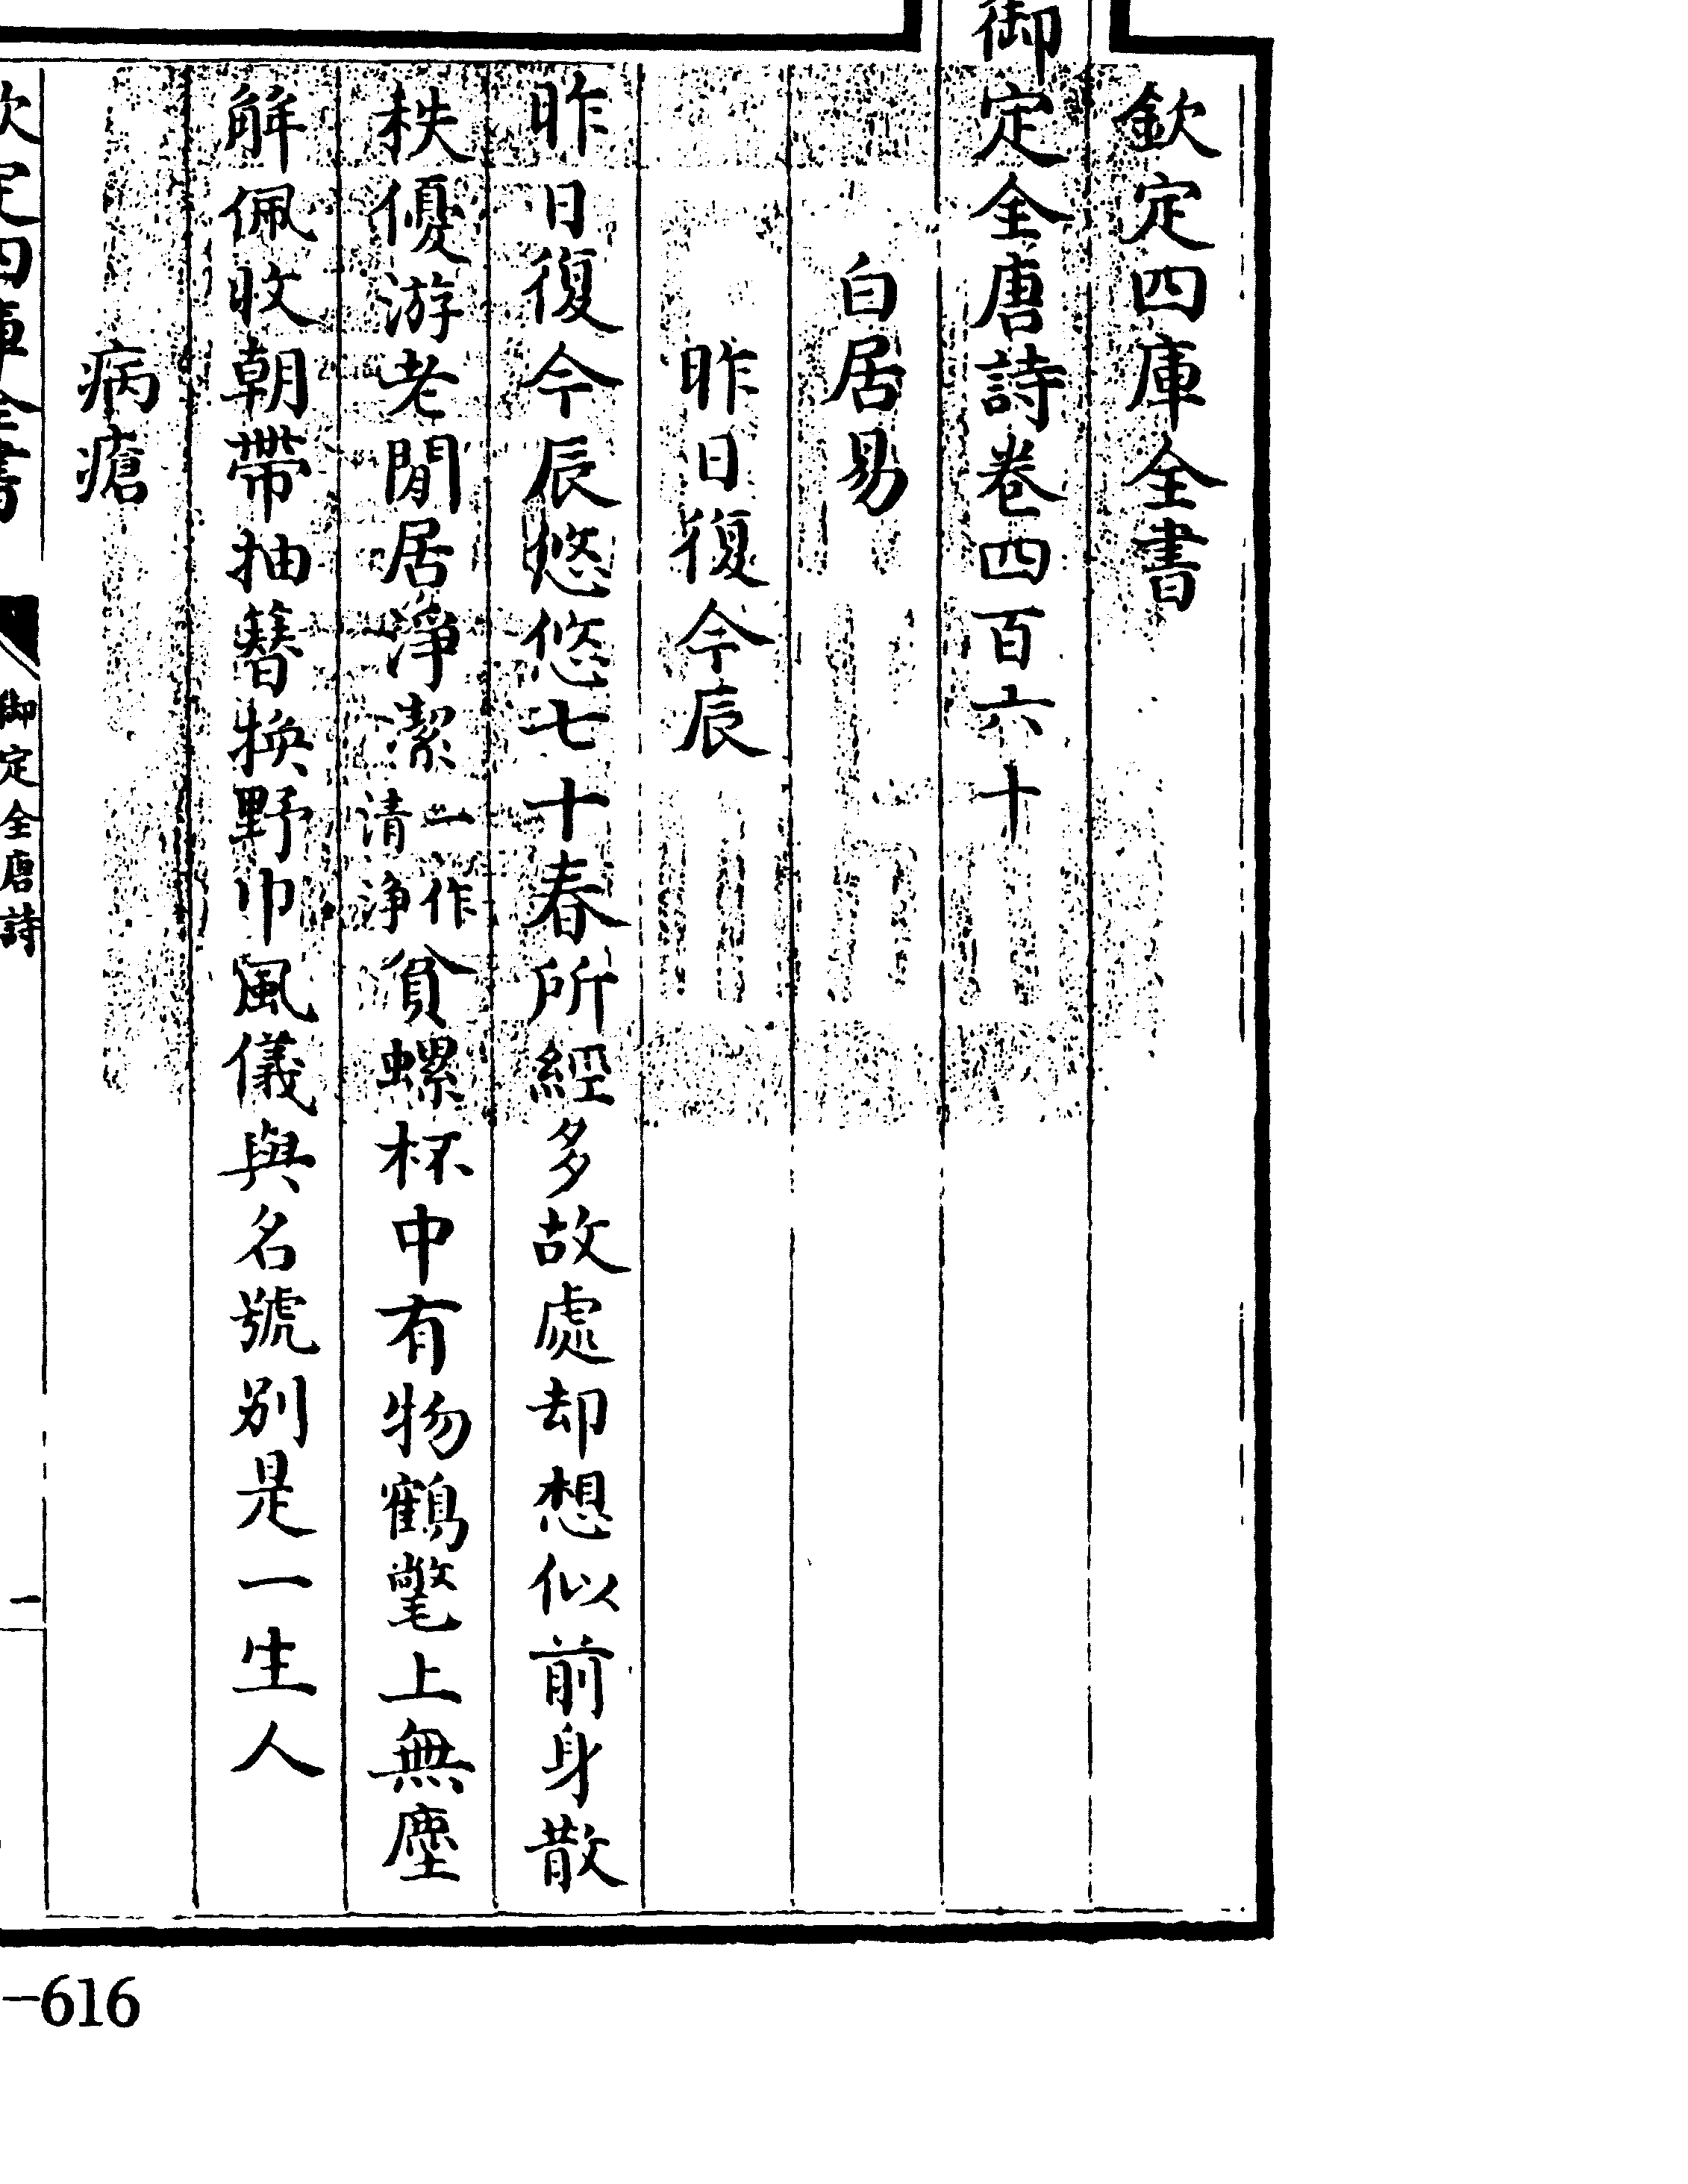 欽定四庫全書
御定全唐詩卷四百六十
白居易
昨日復今辰
昨日復今辰悠悠七十春所經多故處却想似前身散
秩優游老閒居淨潔一作清淨貧螺杯中有物鶴氅上無塵
解佩收朝帶抽簪換野巾風儀與名號别是一生人
病瘡
欽定四庫全書
御定全唐詩
一
-616